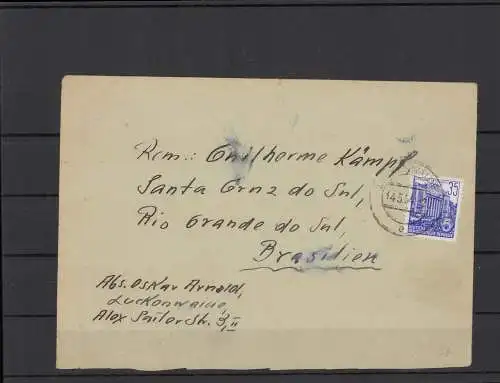 Rem.: Guilherme Kämpf,
Santa Cruz do Sul,
Rio Grande do Sul,
Brasilien
Abs. Oskar Arnold,
Luckenwalde,
Alex Sailer Str. 3, II
35
14.5.5